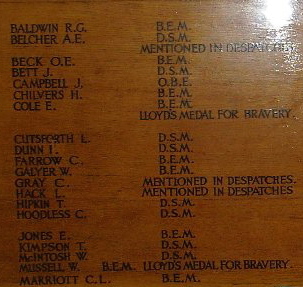 BALDWIN R.G. B.E.M.
BELCHER A.E. D.S.M.
MENTIONED IN DESPATCHES
BECK O.E. B.E.M.
BETT J. D.S.M.
CAMPBELL J. O.B.E.
CHILVERS H. B.E.M.
COLE E. LLOYD'S MEDAL FOR BRAVERY.
CUTSFORTH L. D.S.M.
DUNN I. D.S.M.
FARROW C. B.E.M.
GALYER W. B.E.M.
GRAY C. MENTIONED IN DESPATCHES.
HACK L. MENTIONED IN DESPATCHES
HIPKIN T. D.S.M.
HOODLESS C. D.S.M.
JONES E. B.E.M.
KIMPSON T. D.S.M.
McINTOSH W. D.S.M.
MUSSELL W. B.E.M. LLOYD'S MEDAL FOR BRAVERY.
MARRIOTT C.L. B.E.M.